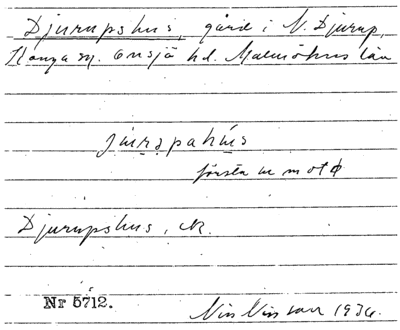 Djurupshus, gård i N. Djurup,
Konga sn. Onsjö hd. Malmöhus län
jurupahus
första u mot ɸ
Djurupshus, ck.
Nr 5712.
Nils Nilsson 1936.